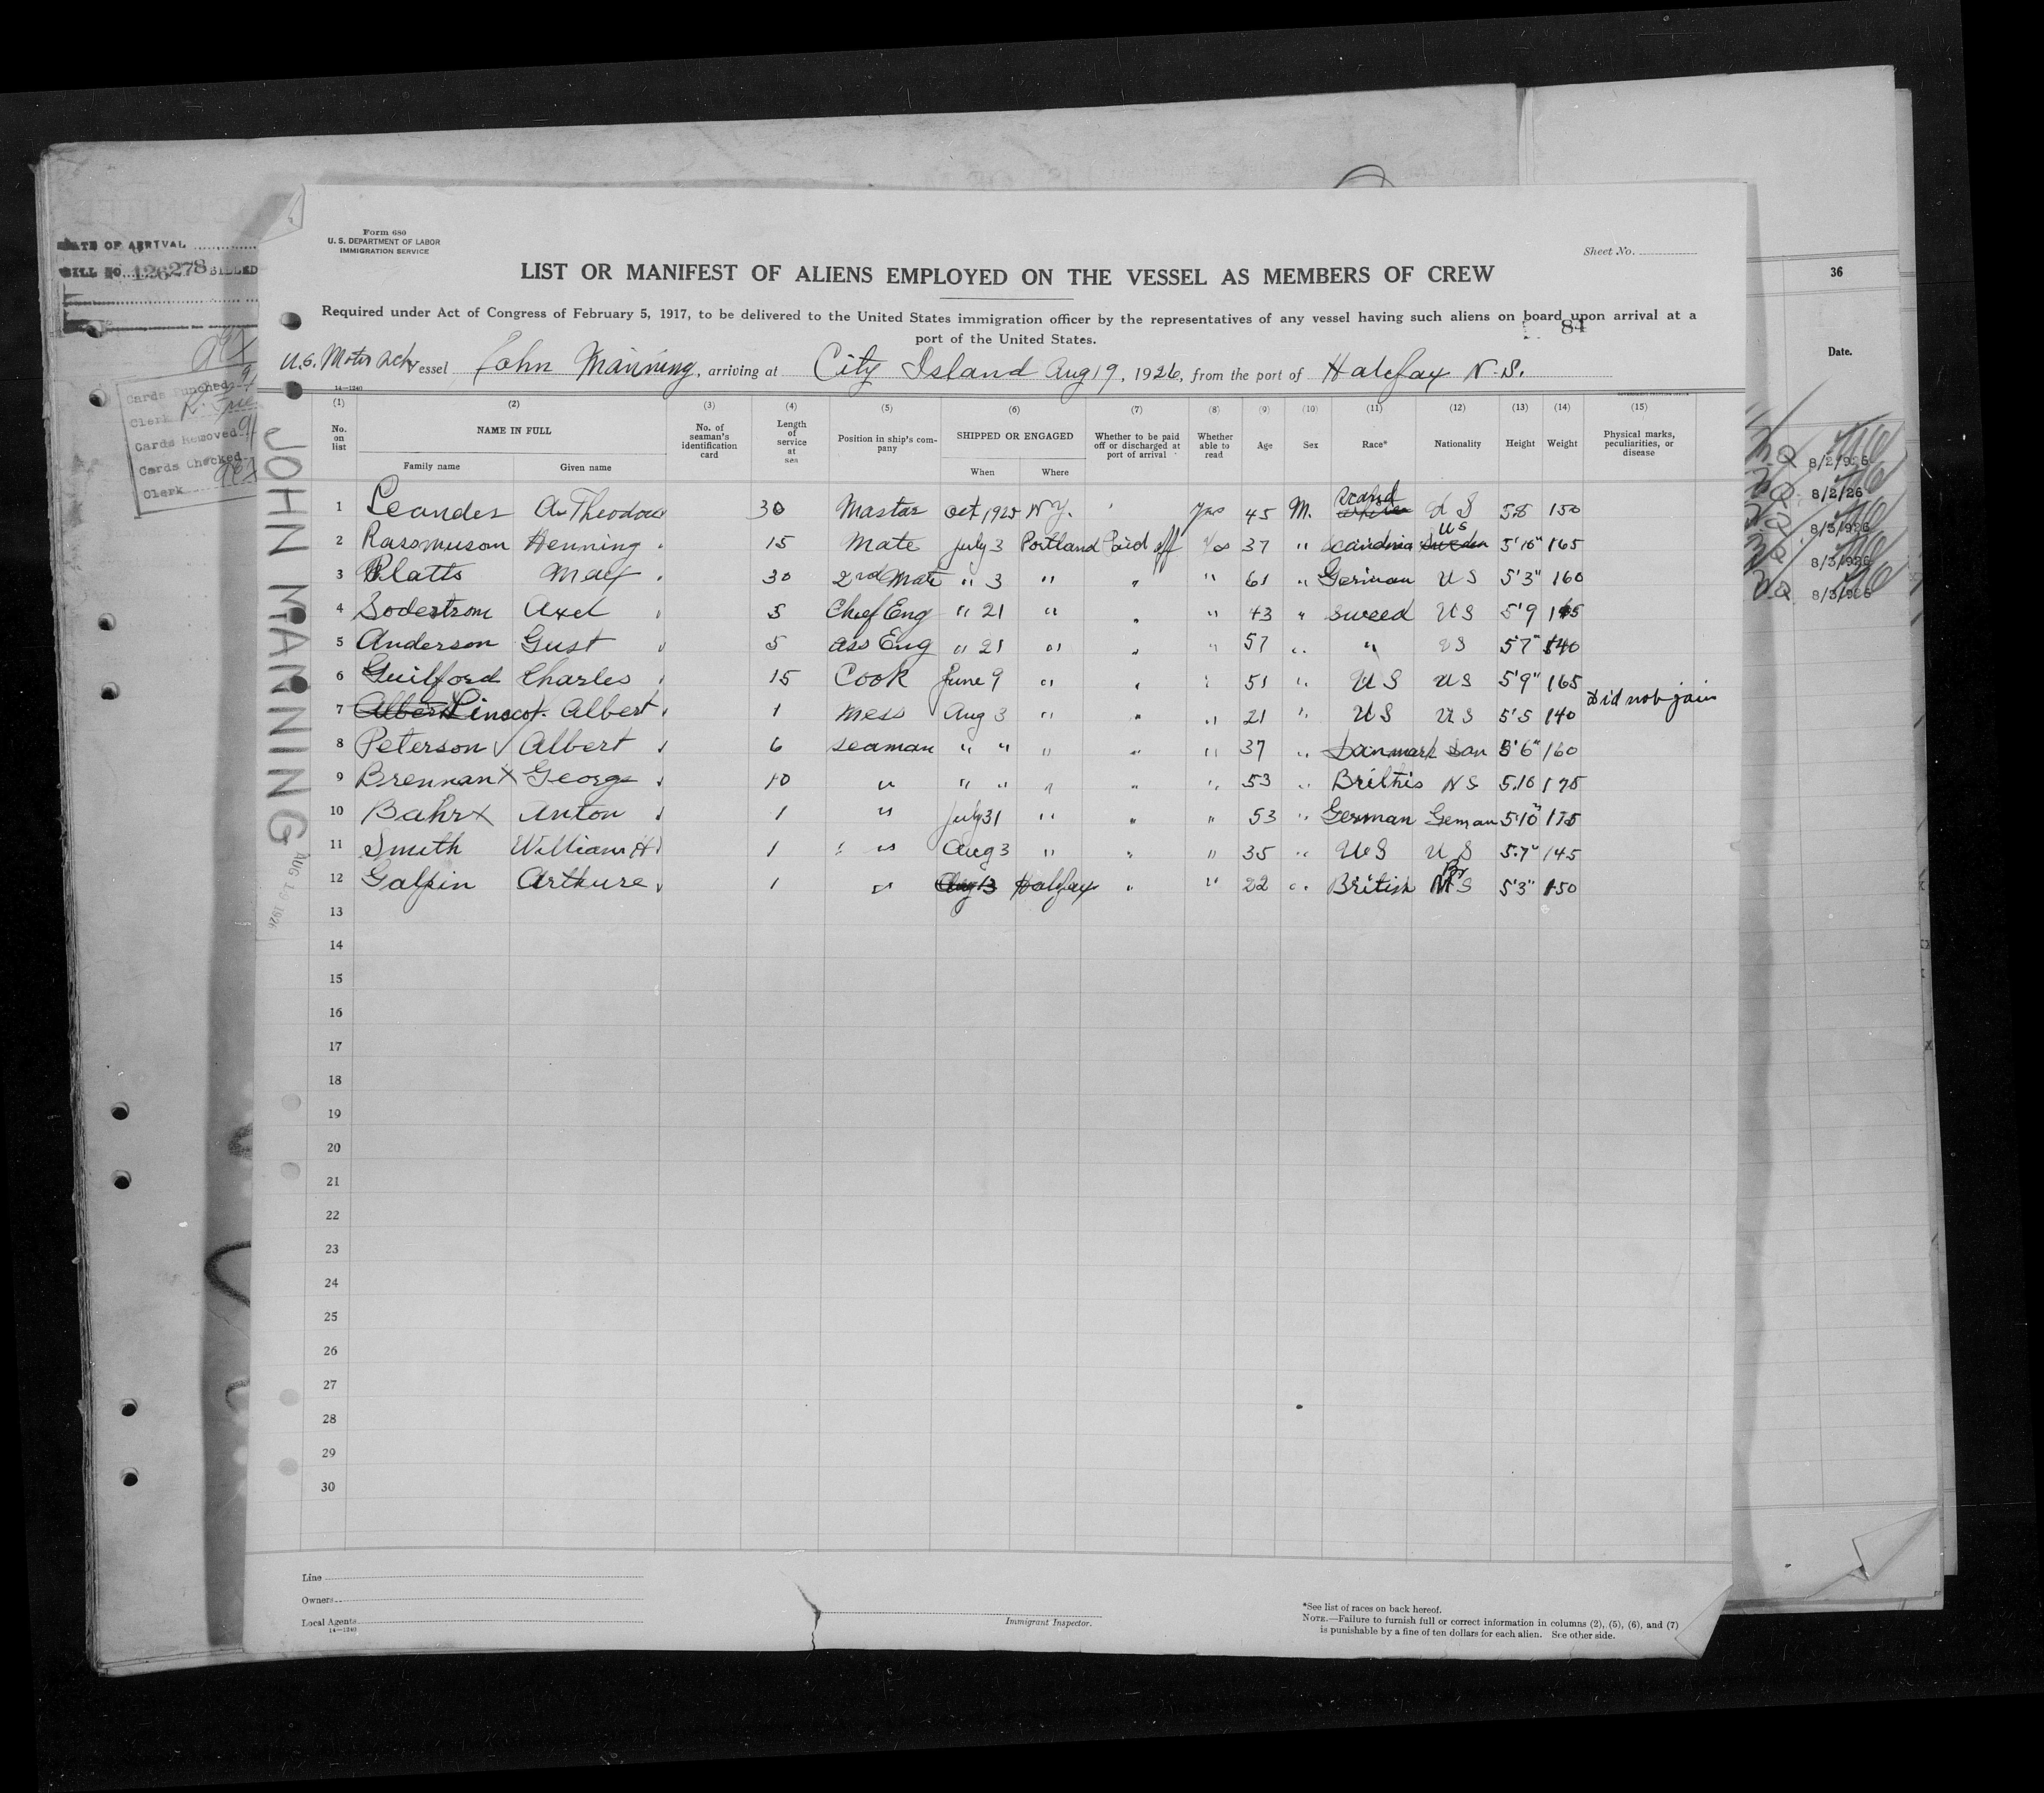 DATE OF ARRIVAL
BILL NO. 126278 BILLED
Cards Punched
Clerk
Cards Removed
Cards Checked
Clerk
36
Date.
8/2/926
8/2/26
8/3/926
8/3/926
8/3/926
JOHN MANNING
AUG 19 1926
Form 680
U. S. DEPARTMENT OF LABOR
IMMIGRATION SERVICE
Sheet No.
LIST OR MANIFEST OF ALIENS EMPLOYED ON THE VESSEL AS MEMBERS OF CREW
Required under Act of Congress of February 5, 1917, to be delivered to the United States immigration officer by the representatives of any vessel having such aliens on board upon arrival at a
port of the United States.
84
U.S. Motor Vessel John Manning, arriving at City Island Aug 19, 1926, from the port of Halefax N.S.
14—1240
(1) (2) (3) (4) (5) (6) (7) (8) (9) (10) (11) (12) (13) (14) (15)
No. on list NAME IN FULL No. of seaman's identification card Length of service at sea Position in ship's company SHIPPED OR ENGAGED Whether to be paid off or discharged at port of arrival Whether able to read Age Sex Race* Nationality Height Weight Physical marks, peculiarities, or disease
Family name Given name When Where
1 Leander A. Theodore 30 Mastar Oct 1925 N.Y. Yes 45 M. Scand U S 5.8 150
2 Rassmuson Henning 15 Mate July 3 Portland Paid off Yes 37 " Scandina Sweden US 5'10" 165
3 Platts Max 30 2nd Mate " 3 " " " 61 " German U S 5'3" 160
4 Soderstrom Axel 5 Chef Eng " 21 " " " 43 " Sweed U S 5'9 145
5 Anderson Gust 5 ass Eng " 21 " " " 57 " " US 5'7" 140
6 Guilford Charles 15 Cook June 9 " " " 51 " U S U S 5'9" 165
7 Albert Albert 1 Mess Aug 3 " " " 21 " U S U S 5'5 140 Did not join
8 Peterson Albert 6 Seaman " " " " " 37 " Danmark Dan 5'6" 160
9 Brennan x George 10 " " " " " " 53 " Brithis N S 5.10 175
10 Bahr x Anton 1 " July 31 " " " 53 " German Geman 5'10" 175
11 Smith William H 1 " Aug 3 " " " 35 " U S U S 5.7" 145
12 Galpin Arthure 1 " Aug 13 Halefax " " 22 " British Br N S 5'3" 150
13
14
15
16
17
18
19
20
21
22
23
24
25
26
27
28
29
30
Line
Owners
Local Agents
14—1240
Immigrant Inspector.
*See list of races on back hereof.
NOTE.—Failure to furnish full or correct information in columns (2), (5), (6), and (7)
is punishable by a fine of ten dollars for each alien. See other side.